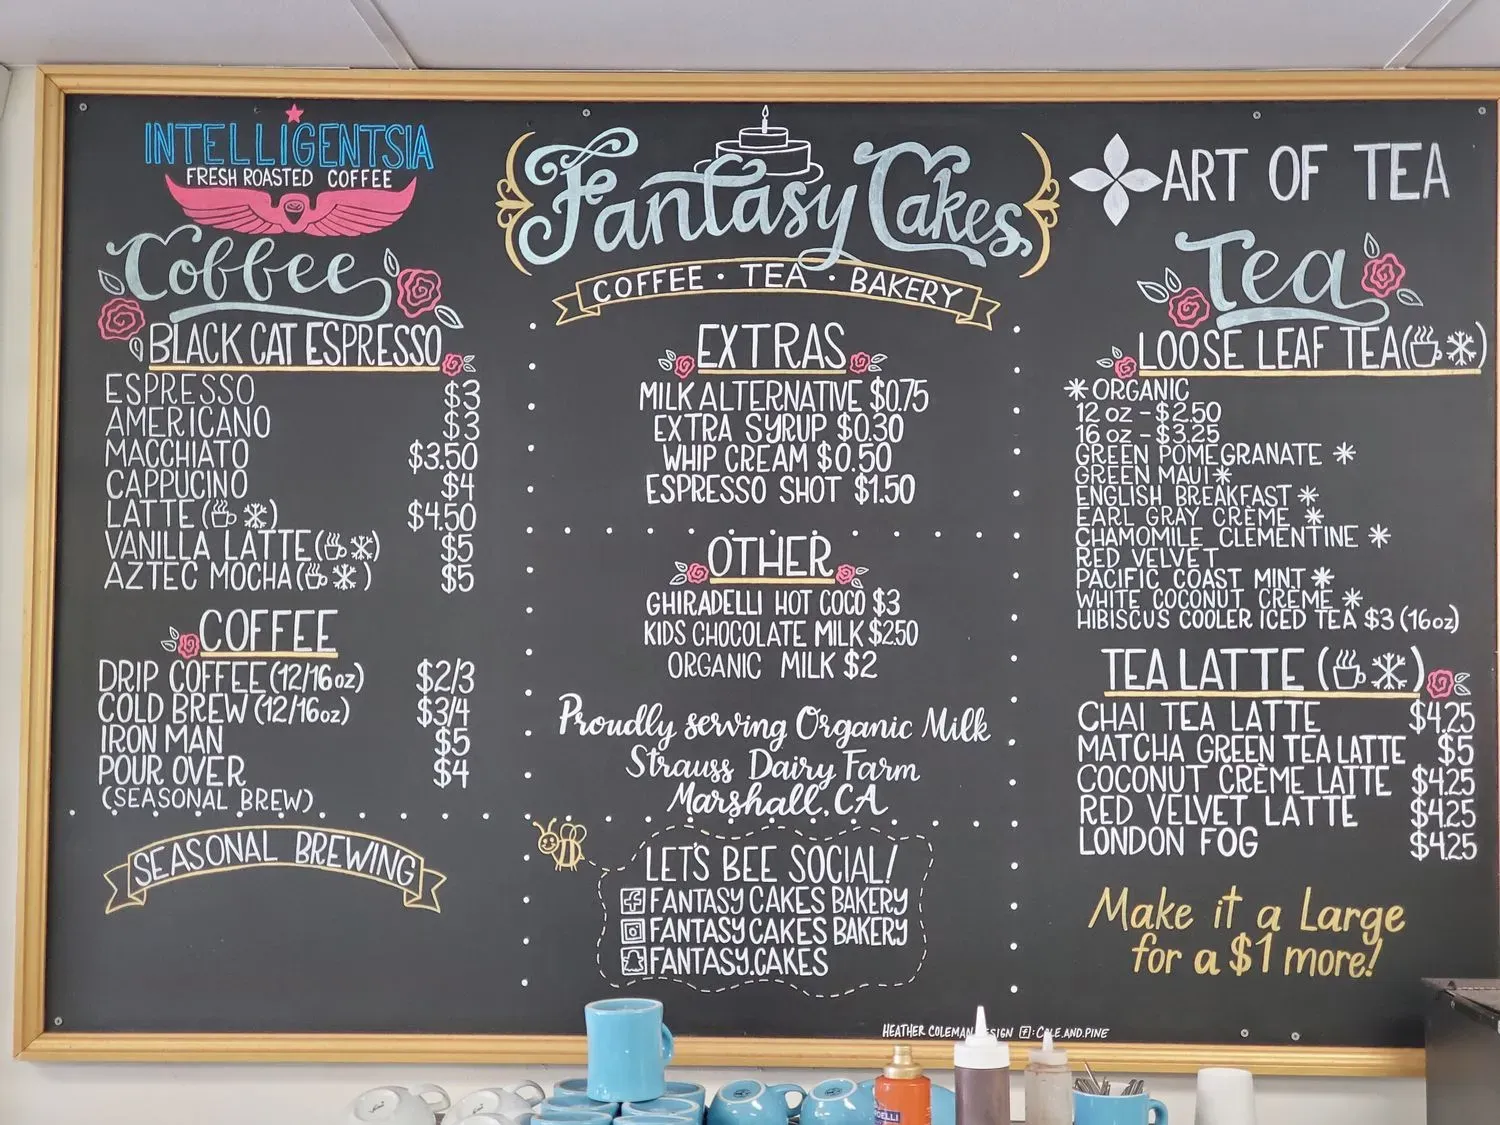 INTELLIGENTSIA
FRESH ROASTED COFFEE
Coffee
BLACK CAT ESPRESSO
ESPRESSO $3
AMERICANO $3
MACCHIATO $3.50
CAPPUCINO $4
LATTE ( ) $4.50
VANILLA LATTE ( ) $5
AZTEC MOCHA ( ) $5
COFFEE
DRIP COFFEE (12/16oz) $2/3
COLD BREW (12/16oz) $3/4
IRON MAN $5
POUR OVER $4
(SEASONAL BREW)
SEASONAL BREWING
Fantasy Cakes
COFFEE · TEA · BAKERY
EXTRAS
MILK ALTERNATIVE $0.75
EXTRA SYRUP $0.30
WHIP CREAM $0.50
ESPRESSO SHOT $1.50
OTHER
GHIRADELLI HOT COCO $3
KIDS CHOCOLATE MILK $2.50
ORGANIC MILK $2
Proudly serving Organic Milk
Strauss Dairy Farm
Marshall, CA
LET'S BEE SOCIAL!
FANTASY CAKES BAKERY
FANTASY CAKES BAKERY
FANTASY.CAKES
ART OF TEA
Tea
LOOSE LEAF TEA ( )
* ORGANIC
12 oz - $2.50
16 oz - $3.25
GREEN POMEGRANATE *
GREEN MAUI *
ENGLISH BREAKFAST *
EARL GRAY CRÈME *
CHAMOMILE CLEMENTINE *
RED VELVET
PACIFIC COAST MINT *
WHITE COCONUT CRÈME *
HIBISCUS COOLER ICED TEA $3 (16oz)
TEA LATTE ( )
CHAI TEA LATTE $4.25
MATCHA GREEN TEA LATTE $5
COCONUT CRÈME LATTE $4.25
RED VELVET LATTE $4.25
LONDON FOG $4.25
Make it a Large
for a $1 more!
HEATHER COLEMAN